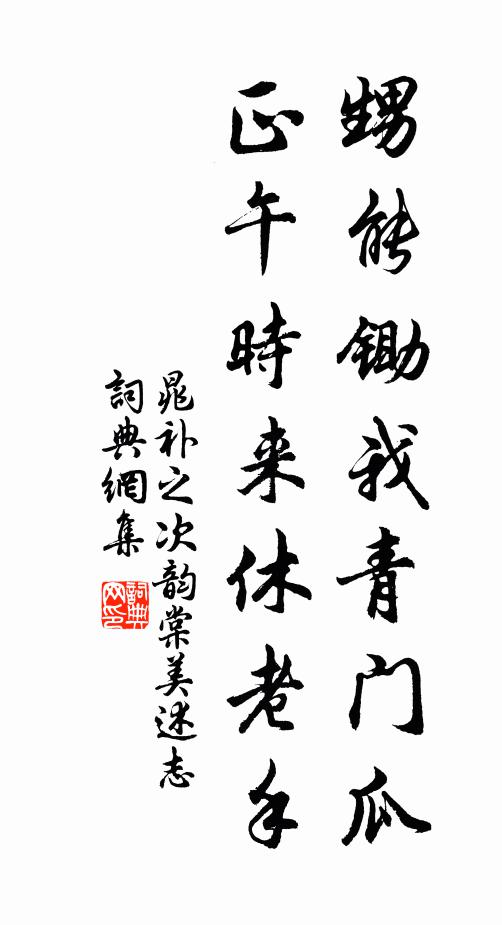 甥能鋤我青门瓜
正午時来休老手
晁补之次韵棠美述志
詞典網集
詞典网印